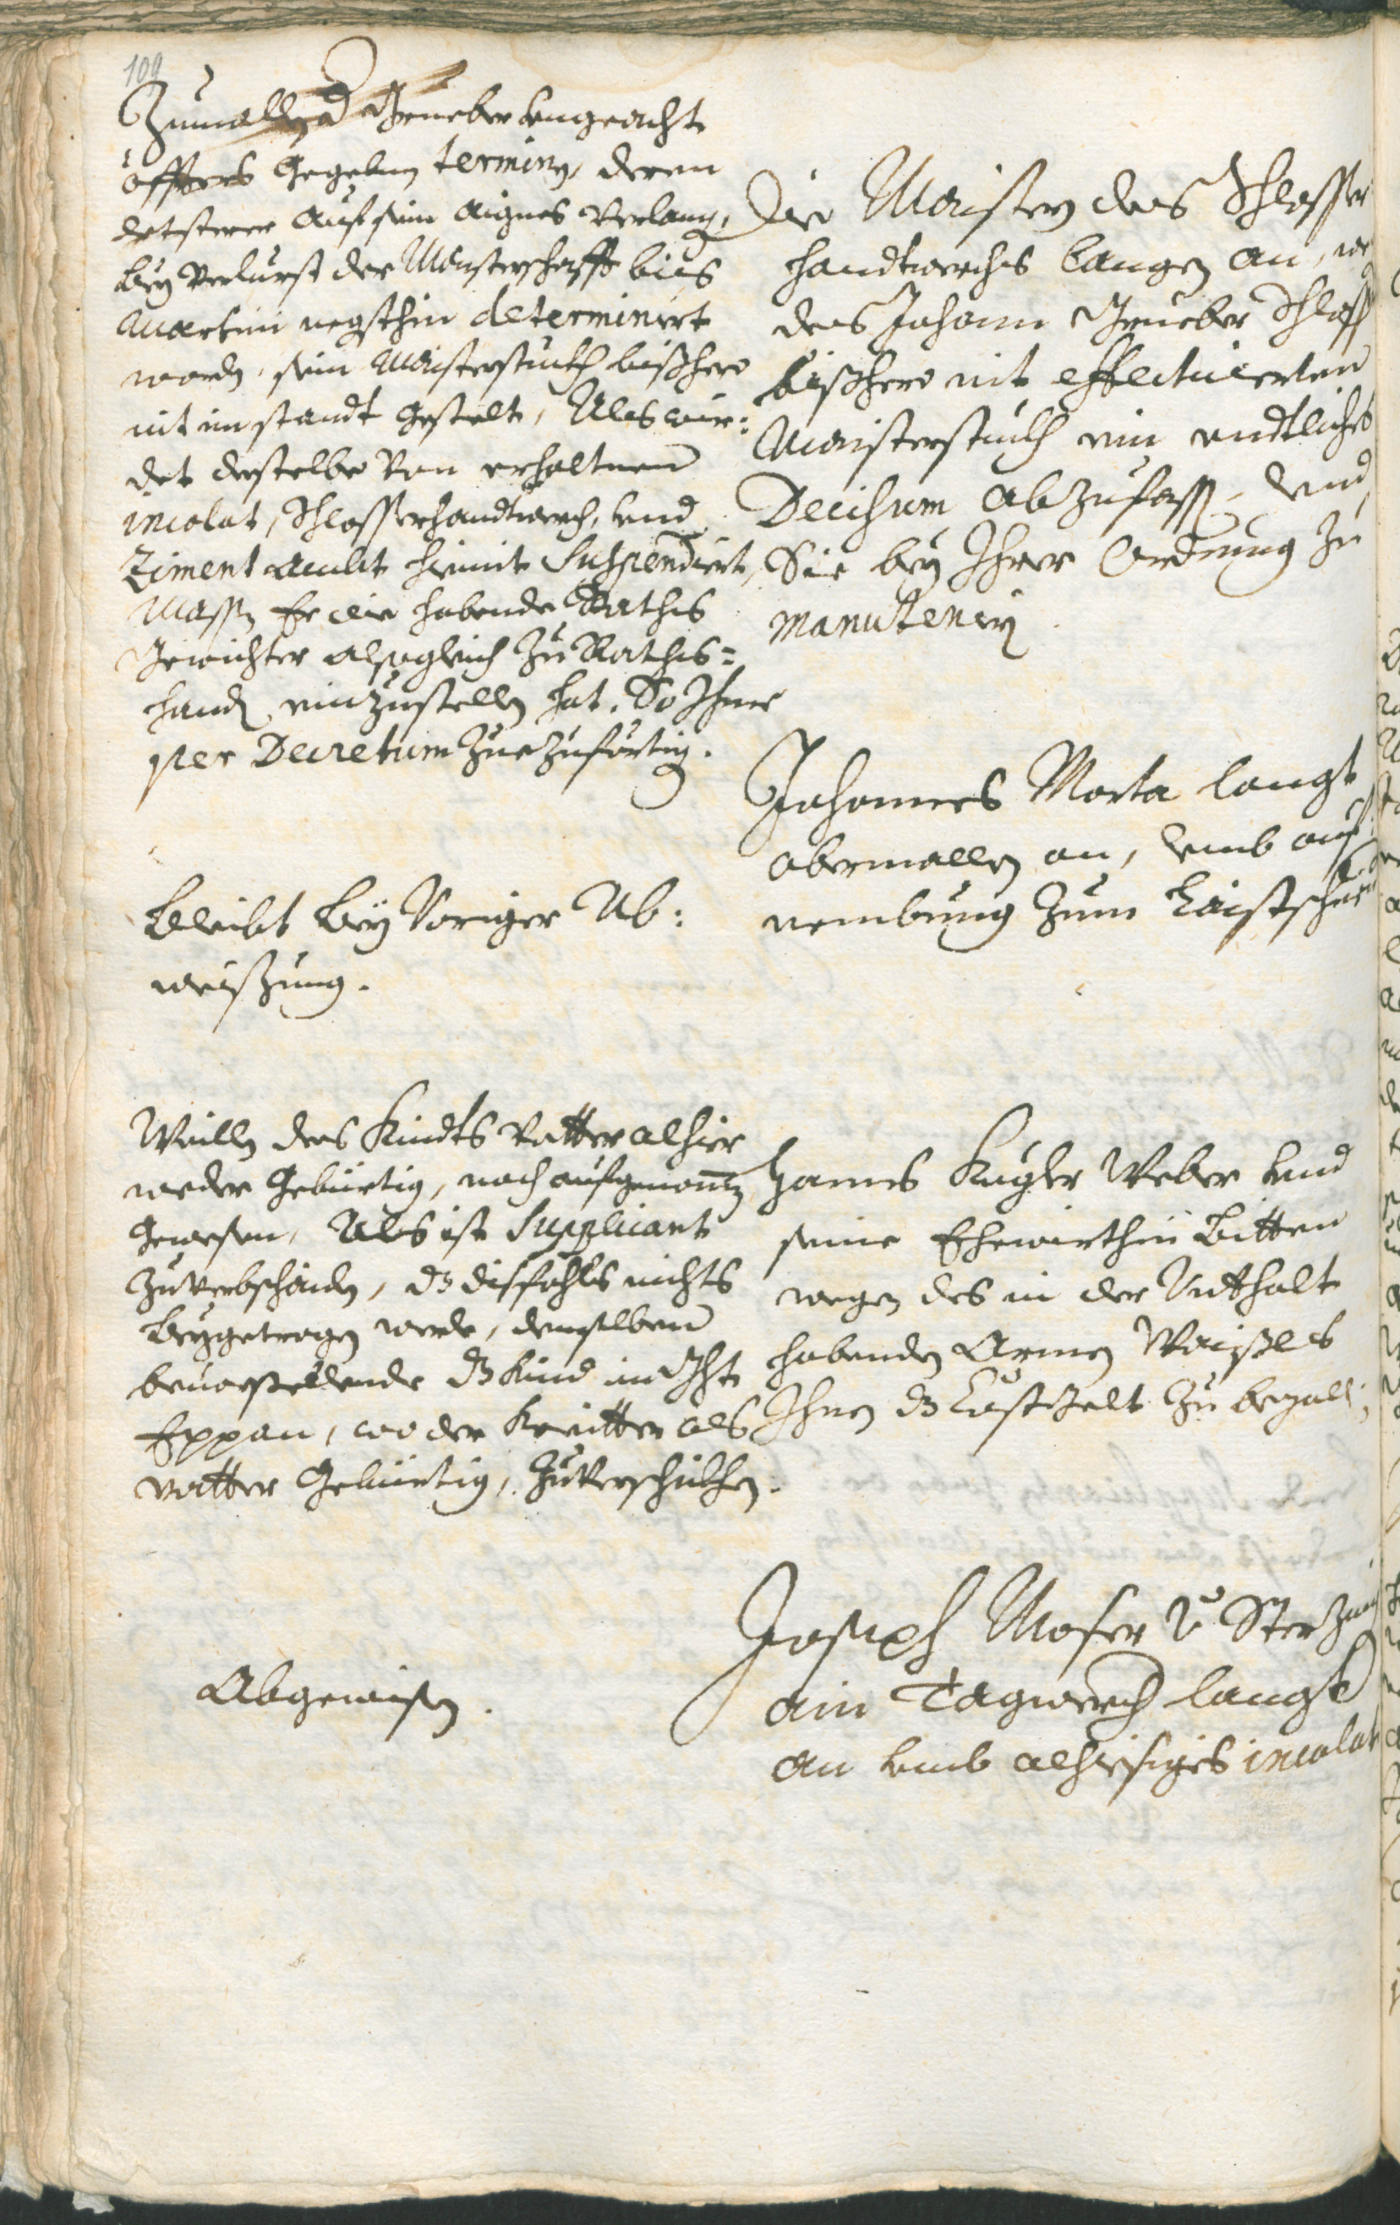 109
Zumallen d Grueber ungeacht
öffters gegebnen termine, deren
letsterer auf sein aignes verlang,
bey verlurst der Maisterschafft biss
Martini negsthin determinirt
worden, sein Maisterstuckh bisshero
nit in standt gestelt, Als wir:
det derselbe von erhaltnen
incolat, Schlosserhandtwerch, und
Ziment ambt hiemit suspendirt,
Massen Er die habende Raths
Gewichter alsogleich zu Raths=
handen einzustellen hat. So Ihme
per Decretum zuezuförtig.
Die Maister des Schlosser
handtwerchs langen an, we
des Johann Grueber Schloss
bisshero nit effectuierten
Maisterstuckh ein endtliches
Decisum abzufassen, und
Sie bey Ihrer Ordnung zu
manuteniern
Bleibt bey voriger Ab:
weissung.
Johannes Morta langt
abermallen an, umb auf
nembung zum
Weillen des Kindts Vatter alhier
weder gebürtig, noch aufgenommen
gewesen, Als ist Supplicant
zuverbschaiden, dz dissfahls nichts
beygetragen werde, demselben
bevorstehende dz Kind in Ght
Eppan, wo der Kreitter als
vatter gebürtig, zuverschickhen.
Hanns Kugler Weber und
seine Ehewirthin bitten
wegen des in der Unthalt
habenden Armen Waisles
Ihnen dz Costgelt zu bezalln
Abgewisen.
Joseph Moser v Sterzing
ain Tagwerch langt
an umb alhiesiges incolat